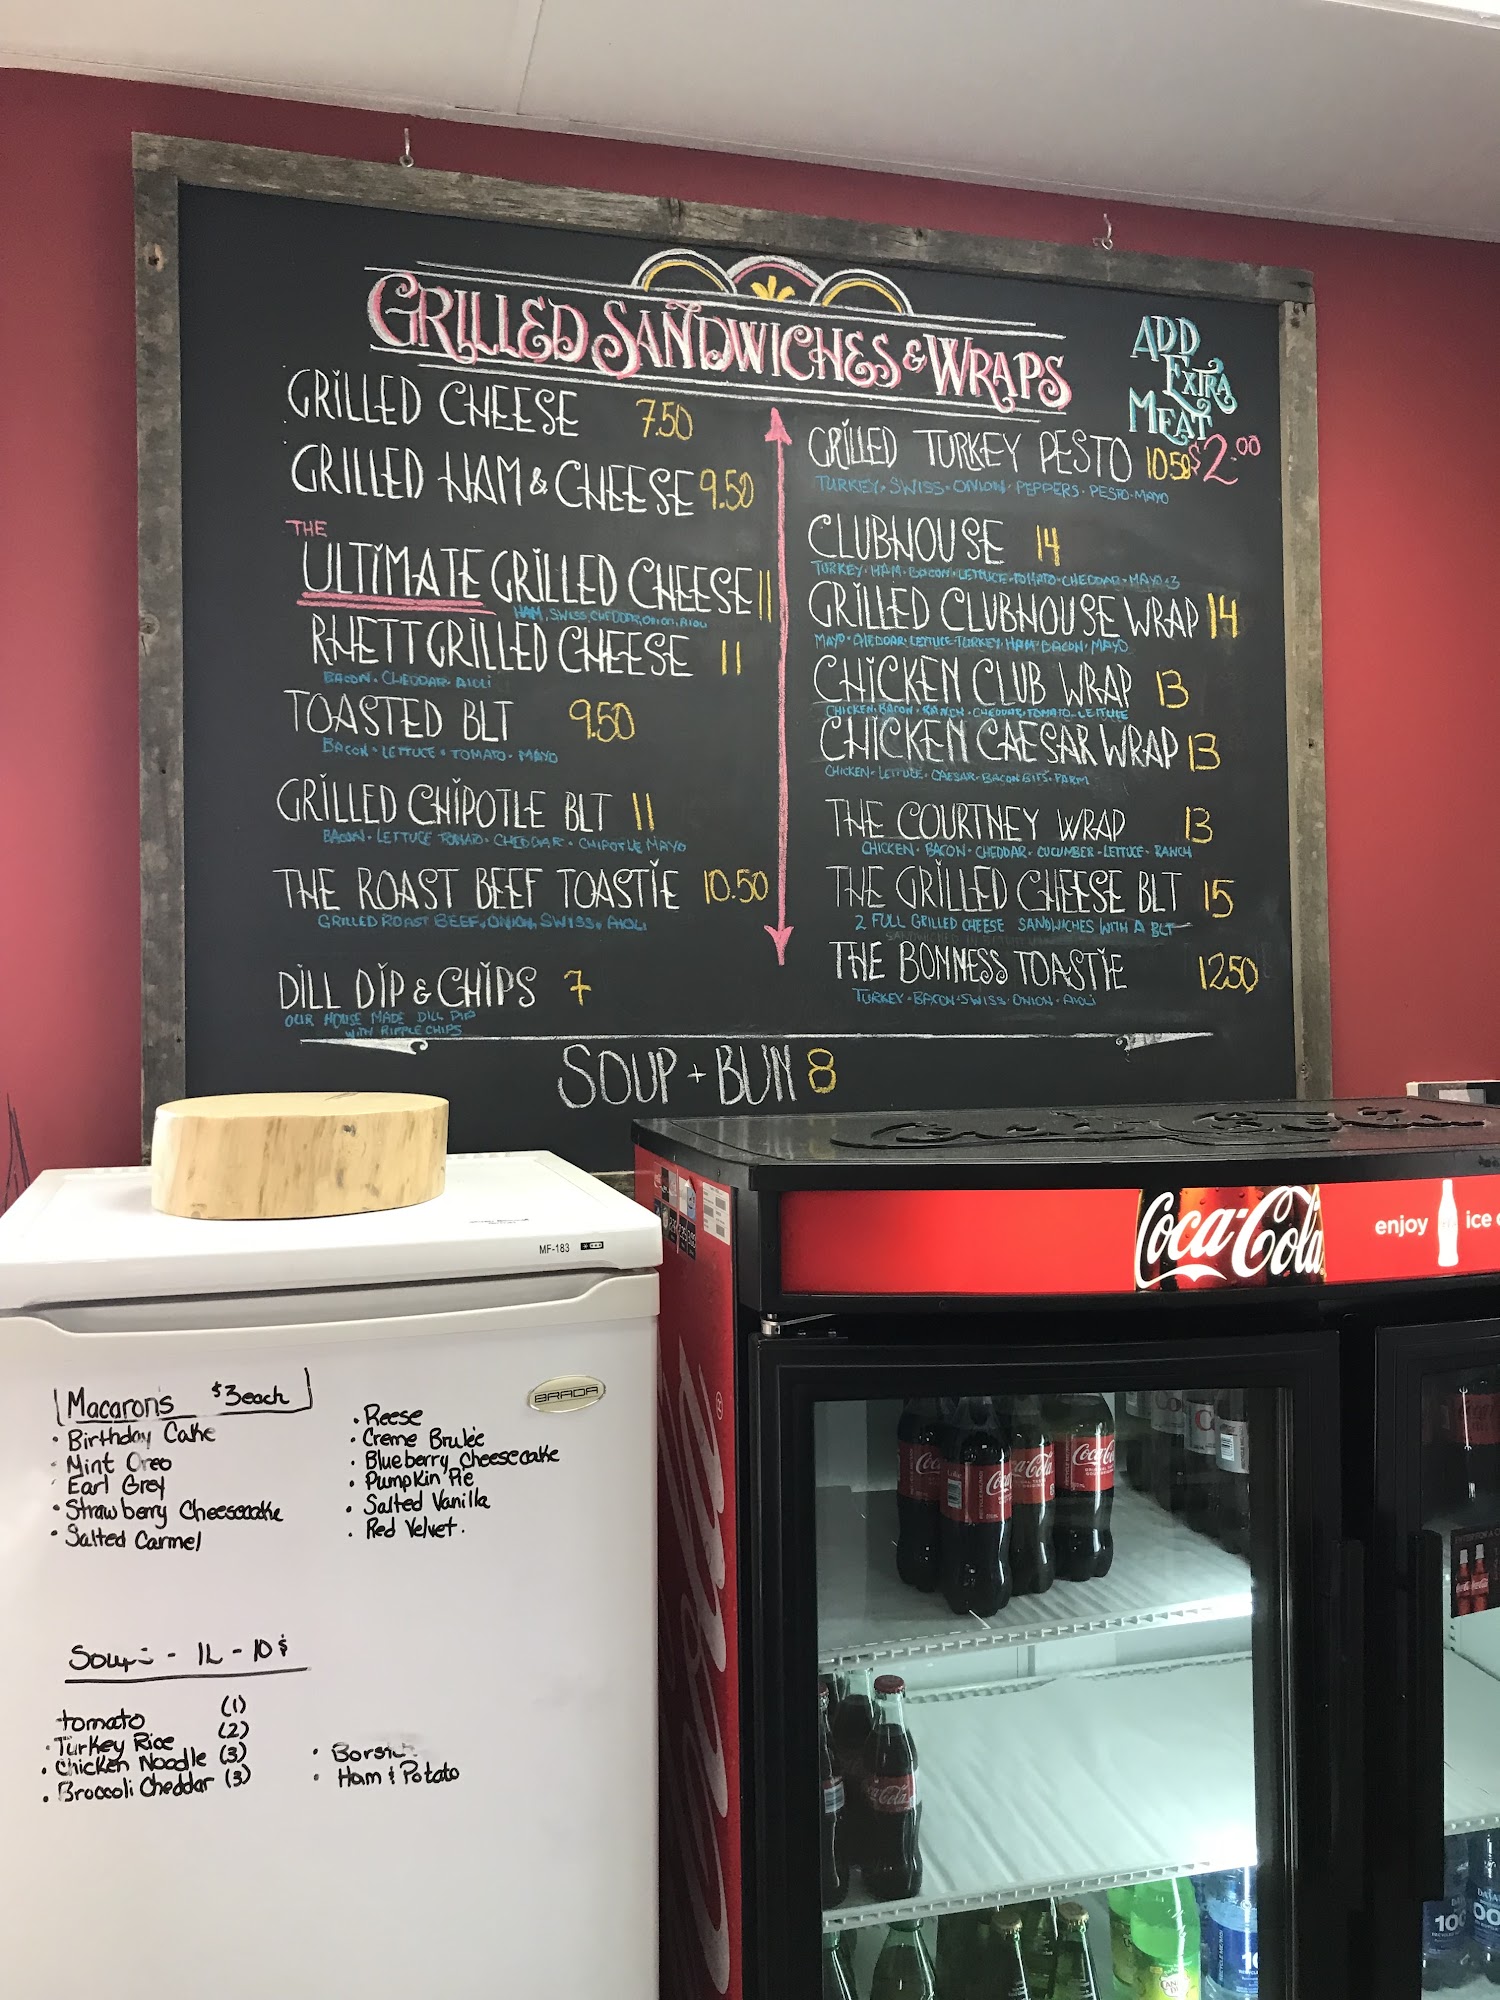 GRILLED SANDWICHES & WRAPS
ADD
EXTRA
MEAT
$2.00
GRILLED CHEESE 7.50
GRILLED HAM & CHEESE 9.50
THE
ULTIMATE GRILLED CHEESE 11
HAM, SWISS, CHEDDAR, ONION, AIOLI
RHETT GRILLED CHEESE 11
BACON • CHEDDAR • AIOLI
TOASTED BLT 9.50
BACON • LETTUCE • TOMATO • MAYO
GRILLED CHIPOTLE BLT 11
BACON • LETTUCE TOMATO • CHEDDAR • CHIPOTLE MAYO
THE ROAST BEEF TOASTIE 10.50
GRILLED ROAST BEEF, ONION, SWISS, AIOLI
DILL DIP & CHIPS 7
OUR HOUSE MADE DILL DIP
WITH RIPPLE CHIPS
GRILLED TURKEY PESTO 10.50
TURKEY • SWISS • ONION • PEPPERS • PESTO • MAYO
CLUBHOUSE 14
TURKEY • HAM • BACON • LETTUCE • TOMATO • CHEDDAR • MAYO
GRILLED CLUBHOUSE WRAP 14
MAYO • CHEDDAR • LETTUCE • TURKEY • HAM • BACON • MAYO
CHICKEN CLUB WRAP 13
CHICKEN • BACON • RANCH • CHEDDAR • TOMATO • LETTUCE
CHICKEN CAESAR WRAP 13
CHICKEN • LETTUCE • CAESAR • BACON BITS • PARM
THE COURTNEY WRAP 13
CHICKEN • BACON • CHEDDAR • CUCUMBER • LETTUCE • RANCH
THE GRILLED CHEESE BLT 15
2 FULL GRILLED CHEESE SANDWICHES WITH A BLT
THE BONNESS TOASTIE 12.50
TURKEY • BACON • SWISS • ONION • AIOLI
SOUP + BUN 8
MF-183
BRADA
Macarons $3 each
• Birthday Cake
• Mint Oreo
• Earl Grey
• Strawberry Cheesecake
• Salted Carmel
• Reese
• Creme Brulée
• Blueberry Cheesecake
• Pumpkin Pie
• Salted Vanilla
• Red Velvet.
Soups - 1L - 10$
tomato (1)
• Turkey Rice (2)
• Chicken Noodle (3)
• Broccoli Cheddar (3)
• Ham & Potato
Coca-Cola
enjoy
ice
Coca-Cola
Coca-Cola
Coca-Cola